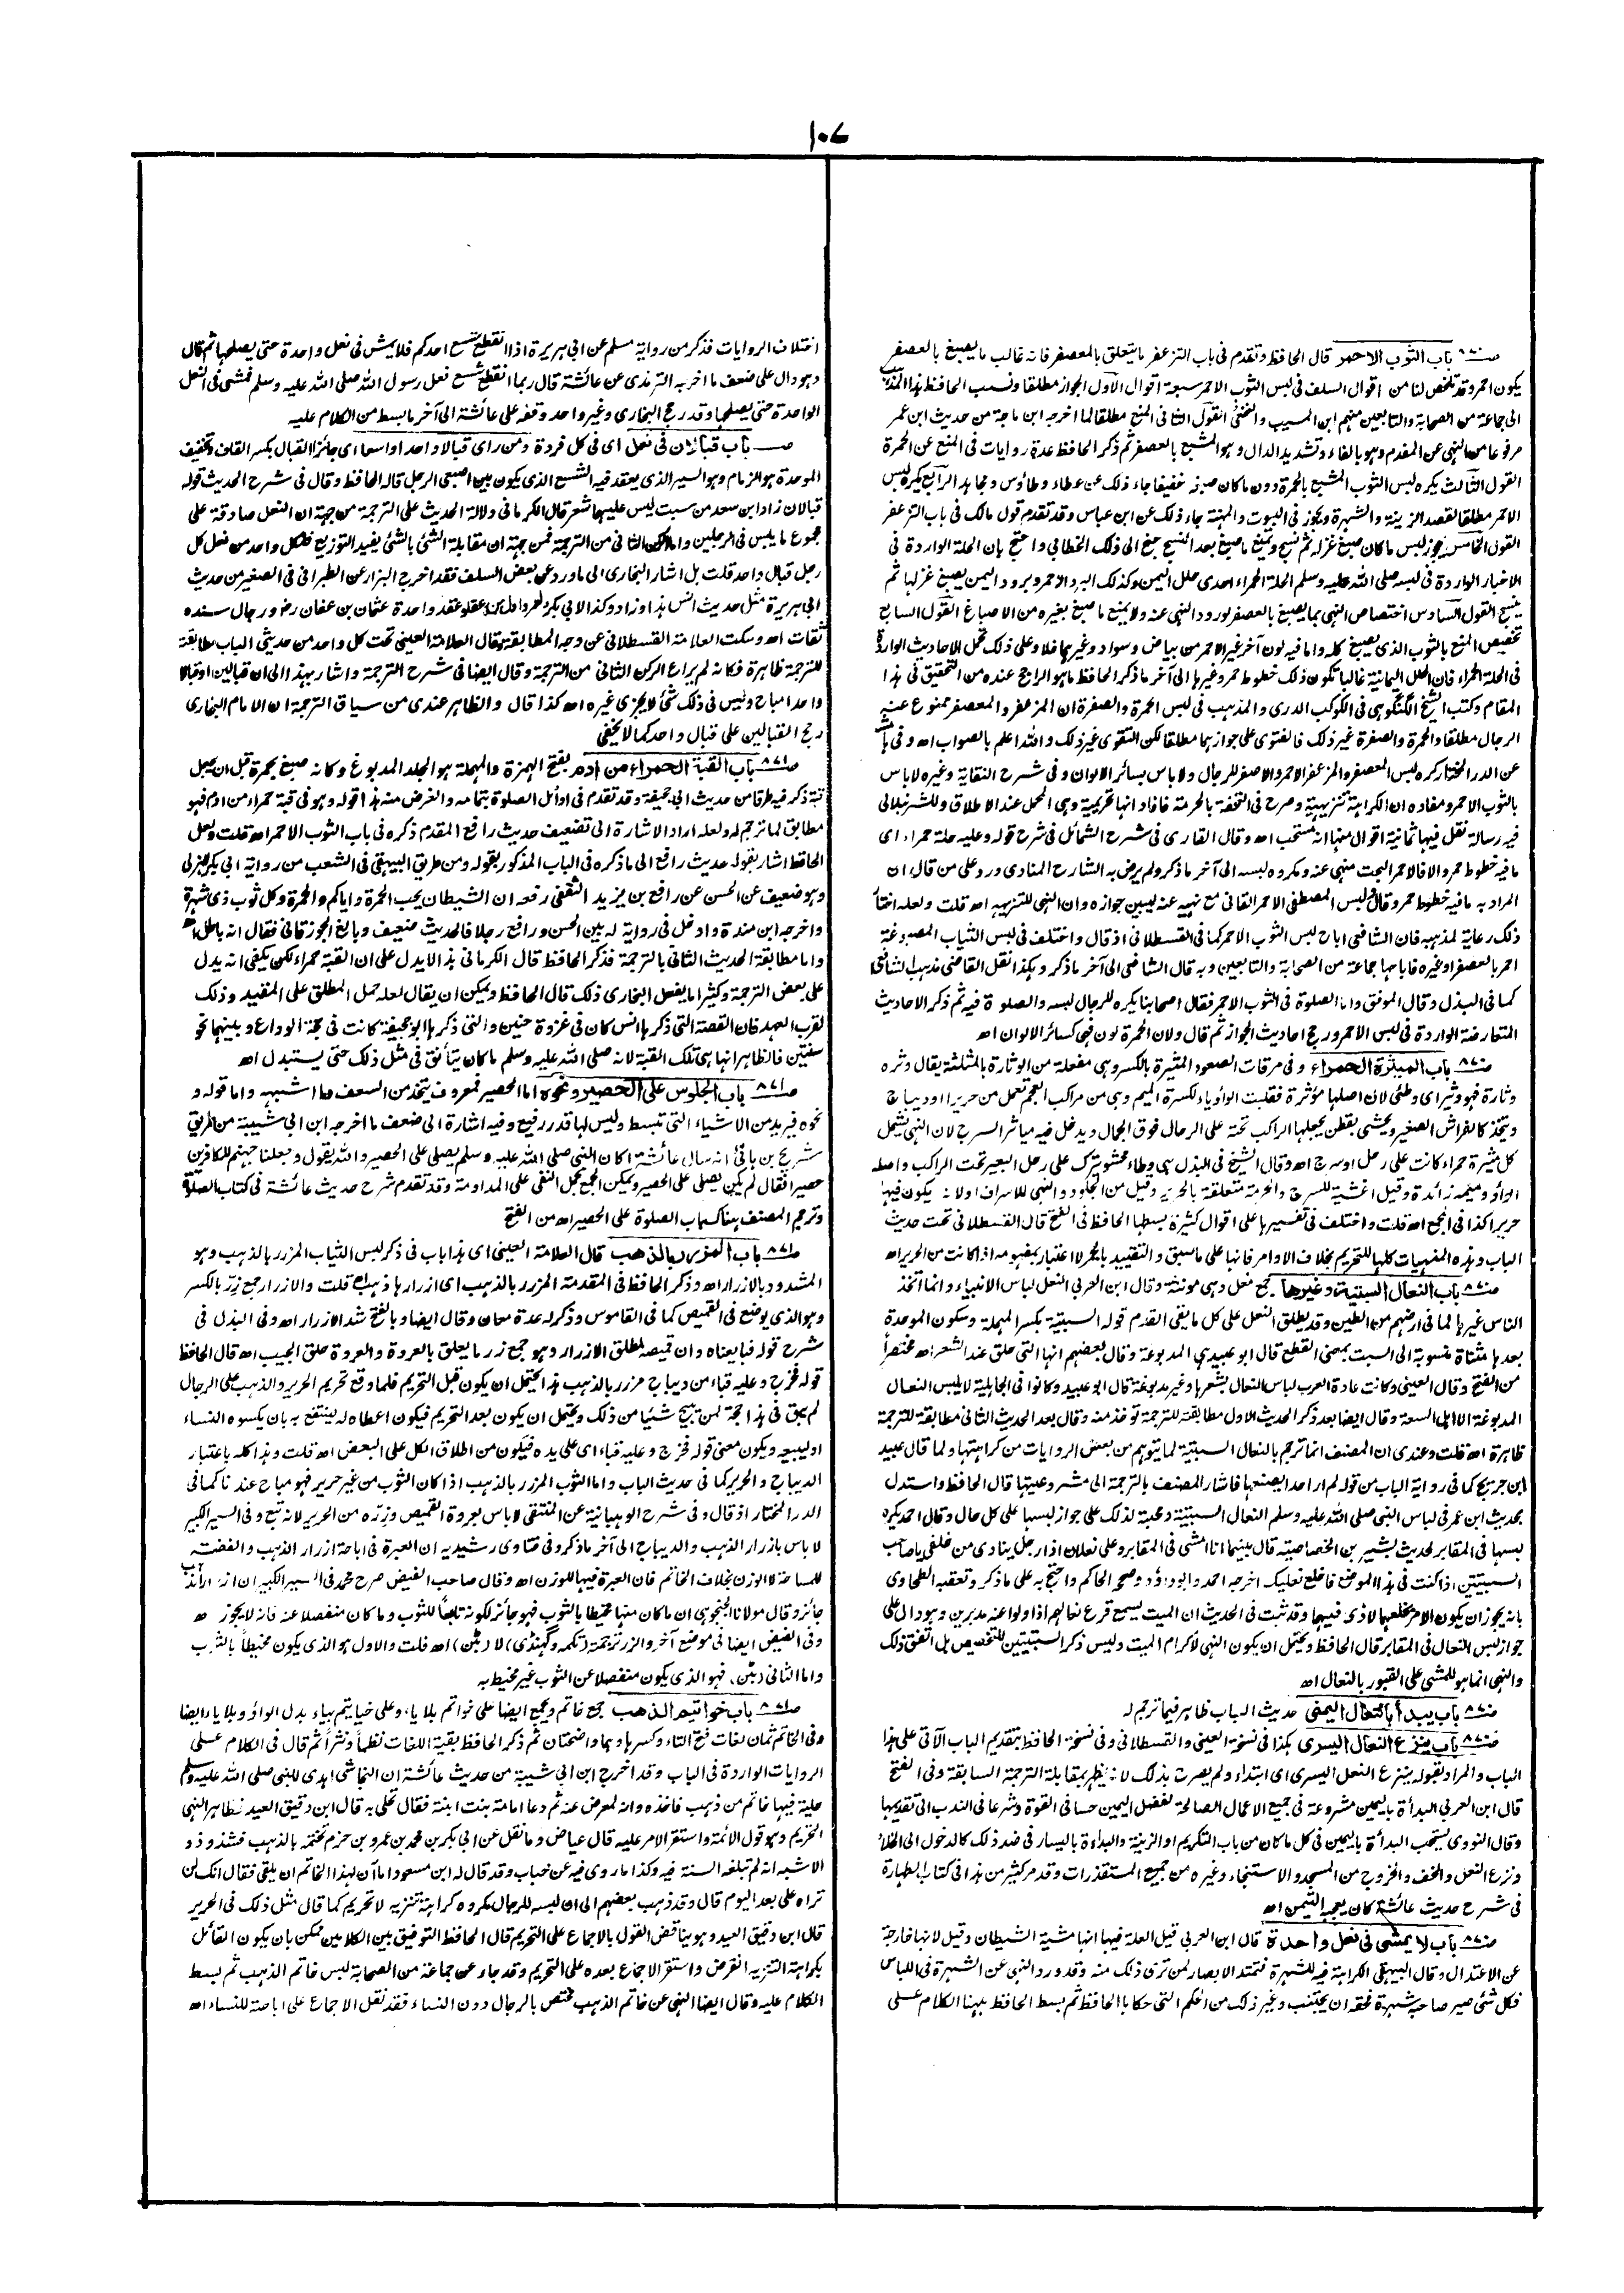 ١٠٧
صـ٨٧٠ باب الثوب الاحمر قال الحافظ وتقدم فى باب التزعفر ما يتعلق بالمعصفر فانه غالب ما يصبغ بالعصفر
يكون احمر وقد تلخص لنا من اقوال السلف فى لبس الثوب الاحمر سبعة اقوال الاول الجواز مطلقا ونسب الحافظ هذا المذهب
الى جماعة من الصحابة والتابعين منهم ابن المسيب والنخعى القول الثانى المنع مطلقا لما اخرجه ابن ماجة من حديث ابن عمر
مرفوعا من النهى عن المفدم وهو بالفاء وتشديد الدال وهو المشبع بالعصفر ثم ذكر الحافظ عدة روايات فى المنع عن الحمرة
القول الثالث يكره لبس الثوب المشبع بالحمرة دون ما كان صبغه خفيفا جاء ذلك عن عطاء وطاؤس ومجاهد الرابع يكره لبس
الاحمر مطلقا لقصد الزينة والشهرة ويجوز فى البيوت والمهنة جاء ذلك عن ابن عباس وقد تقدم قول مالك فى باب التزعفر
القول الخامس يجوز لبس ما كان صبغ غزله ثم نسج ويمنع ما صبغ بعد النسج جنح الى ذلك الخطابى واحتج بان الحلة الواردة فى
الاخبار الواردة فى لبسه صلى الله عليه وسلم الحلة الحمراء احدى حلل اليمن وكذلك البرد الاحمر وبرود اليمن يصبغ غزلها ثم
ينسج القول السادس اختصاص النهى بما يصبغ بالعصفر لورود النهى عنه ولا يمنع ما صبغ بغيره من الاصباغ القول السابع
تخصيص المنع بالثوب الذى يصبغ كله واما فيه لون آخر غير الاحمر من بياض وسواد وغيرهما فلا وعلى ذلك تحمل الاحاديث الواردة
فى الحلة الحمراء فان الحلل اليمانية غالبا تكون ذلك خطوط حمر وغيرها الى آخر ما ذكر الحافظ ما هو الراجح عنده من التحقيق فى هذا
المقام وكتب الشيخ الگنگوهى فى الكوكب الدرى والمذهب فى لبس الحمرة والصفرة ان المزعفر والمعصفر ممنوع عنه
الرجال مطلقا والحمرة والصفرة غير ذلك فالفتوى على جوازهما مطلقا لكن التقوى غير ذلك والله اعلم بالصواب اه وفى
عن الدر المختار كره لبس المعصفر والمزعفر الاحمر والاصفر للرجال ولا باس بسائر الالوان وفى شرح النقاية وغيره لا باس
بالثوب الاحمر ومفاده ان الكراهة تنزيهية وصرح فى التحفة بالحرمة فافاد انها تحريمية وهى المحمل عند الاطلاق وللشرنبلالى
فيه رسالة نقل فيها ثمانية اقوال منها انه مستحب اه وقال القارى فى شرح الشمائل فى شرح قوله وعليه حلة حمراء اى
ما فيه خطوط حمر والا فالاحمر البحت منهى عنه ومكروه لبسه الى آخر ما ذكر ولم يرض به الشارح المناوى ورد على من قال ان
المراد به ما فيه خطوط حمر وقال فلبس المصطفى الاحمر القانى مع نهيه عنه ليبين جوازه وان النهى للتنزيه اه قلت ولعله اختار
ذلك رعاية لمذهبه فان الشافعى اباح لبس الثوب الاحمر كما فى القسطلانى اذ قال واختلف فى لبس الثياب المصبوغة
احمر بالعصفر او غيره فاباحها جماعة من الصحابة والتابعين وبه قال الشافعى الى آخر ما ذكر وهكذا نقل القاضى مذهب الشافعى
كما فى البذل وقال الموفق واما الصلوة فى الثوب الاحمر فقال اصحابنا يكره للرجال لبسه والصلوة فيه ثم ذكر الاحاديث
المتعارضة الواردة فى لبس الاحمر ورجح احاديث الجواز ثم قال ولان الحمرة لون فهى كسائر الالوان اه
صـ٨٧٠ باب الميثرة الحمراء وفى مرقات الصعود المئثيرة بالكسر وهى مفعلة من الوثارة بالمثلثة يقال وثره
وثارة فهو وثير اى وطئى لان اصلها مؤثرة فقلبت الواو ياء لكسرة الميم وهى من مراكب العجم تعمل من حرير او ديباج
وتتخذ كالفراش الصغير ويحشى بقطن يجعلها الراكب تحته على الرحال فوق الجمال ويدخل فيه مياثر السرج لان النهى يشمل
كل مثيرة حمراء كانت على رحل او سرج اه وقال الشيخ فى البذل هى وطاء محشو يترك على رحل البعير تحت الراكب واصله
الواو وميمه زائدة وقيل اغشية للسرج والحرمة متعلقة بالحرير وقيل من الجلود والنهى للاسراف اولانه يكون فيها
حرير كذا فى المجمع اه قلت واختلف فى تفسيرها على اقوال كثيرة بسطها الحافظ فى الفتح قال القسطلانى تحت حديث
الباب وهذه المنهيات كلها للتحريم بخلاف الاوامر فانها على ما سبق والتقييد بالحمر لا اعتبار بمفهومه اذا كانت من الحرير اه
صـ٨٧٠ باب النعال السبتية وغيرها جمع نعل وهى مونثة وقال ابن العربى النعل لباس الانبياء وانما اتخذ
الناس غيرها لما فى ارضهم من الطين وقد يطلق النعل على كل ما يقى القدم قوله السبتية بكسر المهملة وسكون الموحدة
بعدها مثناة منسوبة الى السبت بمعنى القطع قال ابو عبيد هى المدبوغة وقال بعضهم انها التى حلق عنها الشعر اه مختصراً
من الفتح وقال العينى وكانت عادة العرب لباس النعال بشعرها وغير مدبوغة قال ابو عبيد وكانوا فى الجاهلية لا يلبس النعال
المدبوغة الا اهل السعة وقال ايضا بعد ذكر الحديث الاول مطابقته للترجمة توخذ منه وقال بعد الحديث الثانى مطابقته للترجمة
ظاهرة اه قلت وعندى ان المصنف انما ترجم بالنعال السبتية لما يتوهم من بعض الروايات من كراهتها ولما قال عبيد
ابن جريج كما فى رواية الباب من قوله لم ار احدا يصنعها فاشار المصنف بالترجمة الى مشروعيتها قال الحافظ واستدل
بحديث ابن عمر فى لباس النبى صلى الله عليه وسلم النعال السبتية ومحبة لذلك على جواز لبسها على كل حال وقال احمد يكره
لبسها فى المقابر لحديث بشير بن الخصاصية قال بينما انا امشى فى المقابر وعلى نعلان اذا رجل ينادى من خلفى يا صاحب
السبتيتين اذا كنت فى هذا الموضع فاخلع نعليك اخرجه احمد وابو داؤد وصححه الحاكم واحتج به على ما ذكر وتعقبه الطحاوى
بانه يجوز ان يكون الامر بخلعهما لاذى فيهما وقد ثبت فى الحديث ان الميت يسمع قرع نعالهم اذا ولوا عنه مدبرين وهو دال على
جواز لبس النعال فى المقابر قال الحافظ ويحتمل ان يكون النهى لاكرام الميت وليس ذكر السبتيتين للتخصيص بل اتفق ذلك
والنهى انما هو للمشى على القبور بالنعال اه
صـ٨٧٠ باب يبدأ بالنعال اليمنى حديث الباب ظاهر فيما ترجم له
صـ٨٧٠ باب ينزع النعال اليسرى هكذا فى نسخة العينى والقسطلانى وفى نسخة الحافظ بتقديم الباب الآتى على هذا
الباب والمراد بقوله ينزع النعل اليسرى اى ابتداء ولم يصرح بذلك لانه يظهر بمقابلة الترجمة السابقة وفى الفتح
قال ابن العربى البدأة باليمين مشروعة فى جميع الاعمال الصالحة لفضل اليمين حسا فى القوة وشرعا فى الندب الى تقديمها
وقال النووى يستحب البدأة باليمين فى كل ما كان من باب التكريم او الزينة والبداءة باليسار فى ضد ذلك كالدخول الى الخلاء
ونزع النعل والخف والخروج من المسجد والاستنجاء وغيره من جميع المستقذرات وقد مر كثير من هذا فى كتاب الطهارة
فى شرح حديث عائشة كان يعجبه التيمن اه
صـ٨٧٠ باب لا يمشى فى نعل واحدة قال ابن العربى قيل العلة فيها انها مشية الشيطان وقيل لانها خارجة
عن الاعتدال وقال البيهقى الكراهة فيه للشهرة فتمتد الابصار لمن ترى ذلك منه وقد ورد النهى عن الشهرة فى اللباس
فكل شئى صير صاحبه شهرة فحقه ان يجتنب وغير ذلك من الحكم التى حكاها الحافظ ثم بسط الحافظ ههنا الكلام على
اختلاف الروايات فذكر من رواية مسلم عن ابى هريرة اذا انقطع شسع احدكم فلا يمش فى نعل واحدة حتى يصلحها ثم قال
وهو دال على ضعف ما اخرجه الترمذى عن عائشة قال ربما انقطع شسع نعل رسول الله صلى الله عليه وسلم فمشى فى النعل
الواحدة حتى يصلحها وقد رجح البخارى وغير واحد وقفه على عائشة الى آخر ما بسط من الكلام عليه
صـ باب قبالان فى نعل اى فى كل فردة ومن راى قبالا واحدا واسعا اى جائزا القبال بكسر القاف وتخفيف
الموحدة هو الزمام وهو السير الذى يعقد فيه الشسع الذى يكون بين اصبعى الرجل قاله الحافظ وقال فى شرح الحديث قوله
قبالان زاد ابن سعد من سبت ليس عليهما شعر قال الكرمانى ودلالة الحديث على الترجمة من جهة ان النعل صادقة على
مجموع ما يلبس فى الرجلين واما الركن الثانى من الترجمة فمن جهة ان مقابلة الشئ بالشئ يفيد التوزيع فلكل واحد من نعل كل
رجل قبال واحد قلت بل اشار البخارى الى ما ورد عن بعض السلف فقد اخرج البزار عن الطبرانى فى الصغير من حديث
ابى هريرة مثل حديث انس هذا وزاد وكذا لابى بكر ولعمر واول من عقد عقدة واحدة عثمان بن عفان رض ورجال سنده
ثقات اه وسكت العلامة القسطلانى عن وجه المطابقة وقال العلامة العينى تحت كل واحد من حديثى الباب مطابقته
للترجمة ظاهرة فكانه لم يراع الركن الثانى من الترجمة وقال ايضا فى شرح الترجمة واشار بهذا الى ان قبالين او قبالا
واحدا مباح وليس فى ذلك شئ لا يجزى غيره اه كذا قال والظاهر عندى من سياق الترجمة ان الامام البخارى
رجح القبالين على قبال واحد كما لا يخفى
صـ٨٧١ باب القبة الحمراء من ادم بفتح الهمزة والمهملة هو الجلد المدبوغ وكانه صبغ بحمرة قبل ان يجعل
قبة ذكر فيه طرفا من حديث ابى جحيفة وقد تقدم فى اوائل الصلوة بتمامه والغرض منه هذا قوله وهو فى قبة حمراء من ادم فهو
مطابق لما ترجم له ولعله اراد الاشارة الى تضعيف حديث رافع المقدم ذكره فى باب الثوب الاحمر اه قلت ولعل
الحافظ اشار بقوله حديث رافع الى ما ذكره فى الباب المذكور بقوله ومن طريق البيهقى فى الشعب من رواية ابى بكر الهذلى
وهو ضعيف عن الحسن عن رافع بن يزيد الثقفى رفعه ان الشيطان يحب الحمرة واياكم والحمرة وكل ثوب ذى شهرة
واخرجه ابن مندة وادخل فى رواية له بين الحسن ورافع رجلا فالحديث ضعيف وبالغ الجوزقانى فقال انه باطل اه
واما مطابقة الحديث الثانى بالترجمة فذكر الحافظ قال الكرمانى هذا لا يدل على ان القبة حمراء لكن يكفى انه يدل
على بعض الترجمة وكثيرا ما يفعل البخارى ذلك قال الحافظ ويمكن ان يقال لعله حمل المطلق على المقيد وذلك
لقرب العهد فان القصة التى ذكرها انس كان فى غزوة حنين والتى ذكرها ابو جحيفة كانت فى حجة الوداع وبينهما نحو
سنتين فالظاهر انها هى تلك القبة لانه صلى الله عليه وسلم ما كان يتأنق فى مثل ذلك حتى يستبدل اه
صـ٨٧١ باب الجلوس على الحصير ونحوه اما الحصير فمعروف يتخذ من السعف وما اشبهه واما قوله و
نحوه فيريد من الاشياء التى تبسط وليس لها قدر رفيع وفيه اشارة الى ضعف ما اخرجه ابن ابى شيبة من طريق
شريح بن هانئ انه سال عائشة اكان النبى صلى الله عليه وسلم يصلى على الحصير والله يقول وجعلنا جهنم للكافرين
حصيرا فقال لم يكن يصلى على الحصير ويمكن الجمع بحمل النفى على المداومة وقد تقدم شرح حديث عائشة فى كتاب الصلوة
وترجم المصنف هناك باب الصلوة على الحصير اه من الفتح
صـ٨٧١ باب المزرر بالذهب قال العلامة العينى اى هذا باب فى ذكر لبس الثياب المزرر بالذهب وهو
المشدود بالازرار اه وذكر الحافظ فى المقدمة المزرر بالذهب اى ازرارها ذهب اه قلت والازرار جمع زر بالكسر
وهو الذى يوضع فى القميص كما فى القاموس وذكر له عدة معان وقال ايضا وبالفتح شد الازرار اه وفى البذل فى
شرح قوله فبايعناه وان قميصه لمطلق الازرار وهو جمع زر ما يعلق بالعروة والعروة حلق الجيب اه قال الحافظ
قوله فخرج وعليه قباء من ديباج مزرر بالذهب هذا يحتمل ان يكون قبل التحريم فلما وقع تحريم الحرير والذهب على الرجال
لم يبق فى هذا حجة لمن يبيح شئيا من ذلك ويحتمل ان يكون بعد التحريم فيكون اعطاه له لينتفع به بان يكسوه النساء
او ليبيعه ويكون معنى قوله فخرج وعليه قباء اى على يده فيكون من اطلاق الكل على البعض اه قلت وهذا كله باعتبار
الديباج والحرير كما فى حديث الباب واما الثوب المزرر بالذهب اذا كان الثوب من غير حرير فهو مباح عندنا كما فى
الدر المختار اذ قال وفى شرح الوهبانية عن المنتقى لا باس بعروة القميص وزره من الحرير لانه تبع وفى السير الكبير
لا باس بازرار الذهب والديباج الى آخر ما ذكر وفى فتاوى رشيديه ان العبرة فى اباحة ازرار الذهب والفضة
للمساحة لا الوزن بخلاف الخاتم فان العبرة فيها للوزن اه وقال صاحب الفيض صرح محمد فى السير الكبير ان ازرار الذهب
جائز وقال مولانا الجنجوهى ان ما كان منها مخيطا بالثوب فهو جائز لكونه تابعاً للثوب وما كان منفصلا عنه فانه لا يجوز اه
وفى الفيض ايضا فى موضع آخر والزر ترجمة (تكمه وگهنڈى) لا (بٹن) اه قلت والاول هو الذى يكون مخيطاً بالثوب
واما الثانى (بٹن) فهو الذى يكون منفصلا عن الثوب غير مخيط به
صـ٨٧١ باب خواتيم الذهب جمع خاتم ويجمع ايضا على خواتم بلا ياء وعلى خياتيم بياء بدل الواو وبلا ياء ايضا
وفى الخاتم ثمان لغات فتح التاء وكسرها وهما واضحتان ثم ذكر الحافظ بقية اللغات نظماً ونثراً ثم قال فى الكلام على
الروايات الواردة فى الباب وقد اخرج ابن ابى شيبة من حديث عائشة ان النجاشى اهدى للنبى صلى الله عليه وسلم
حلية فيها خاتم من ذهب فاخذه وانه لمعرض عنه ثم دعا امامة بنت ابنته فقال تحلى به قال ابن دقيق العيد فظاهر النهى
التحريم وهو قول الائمة واستقر الامر عليه قال عياض وما نقل عن ابى بكر بن محمد بن عمرو بن حزم من تختمه بالذهب فشذوذ و
الاشبه انه لم تبلغه السنة فيه وكذا ما روى فيه عن خباب وقد قال له ابن مسعود اما آن لهذا الخاتم ان يلقى فقال انك لن
تراه على بعد اليوم قال وقد ذهب بعضهم الى ان لبسه للرجال مكروه كراهة تنزيه لا تحريم كما قال مثل ذلك فى الحرير
قال ابن دقيق العيد وهو يناقض القول بالاجماع على التحريم قال الحافظ التوفيق بين الكلامين ممكن بان يكون القائل
بكراهة التنزيه انقرض واستقر الاجماع بعده على التحريم وقد جاء عن جماعة من الصحابة لبس خاتم الذهب ثم بسط
الكلام عليه وقال ايضا النهى عن خاتم الذهب مختص بالرجال دون النساء فقد نقل الاجماع على اباحته للنساء اه